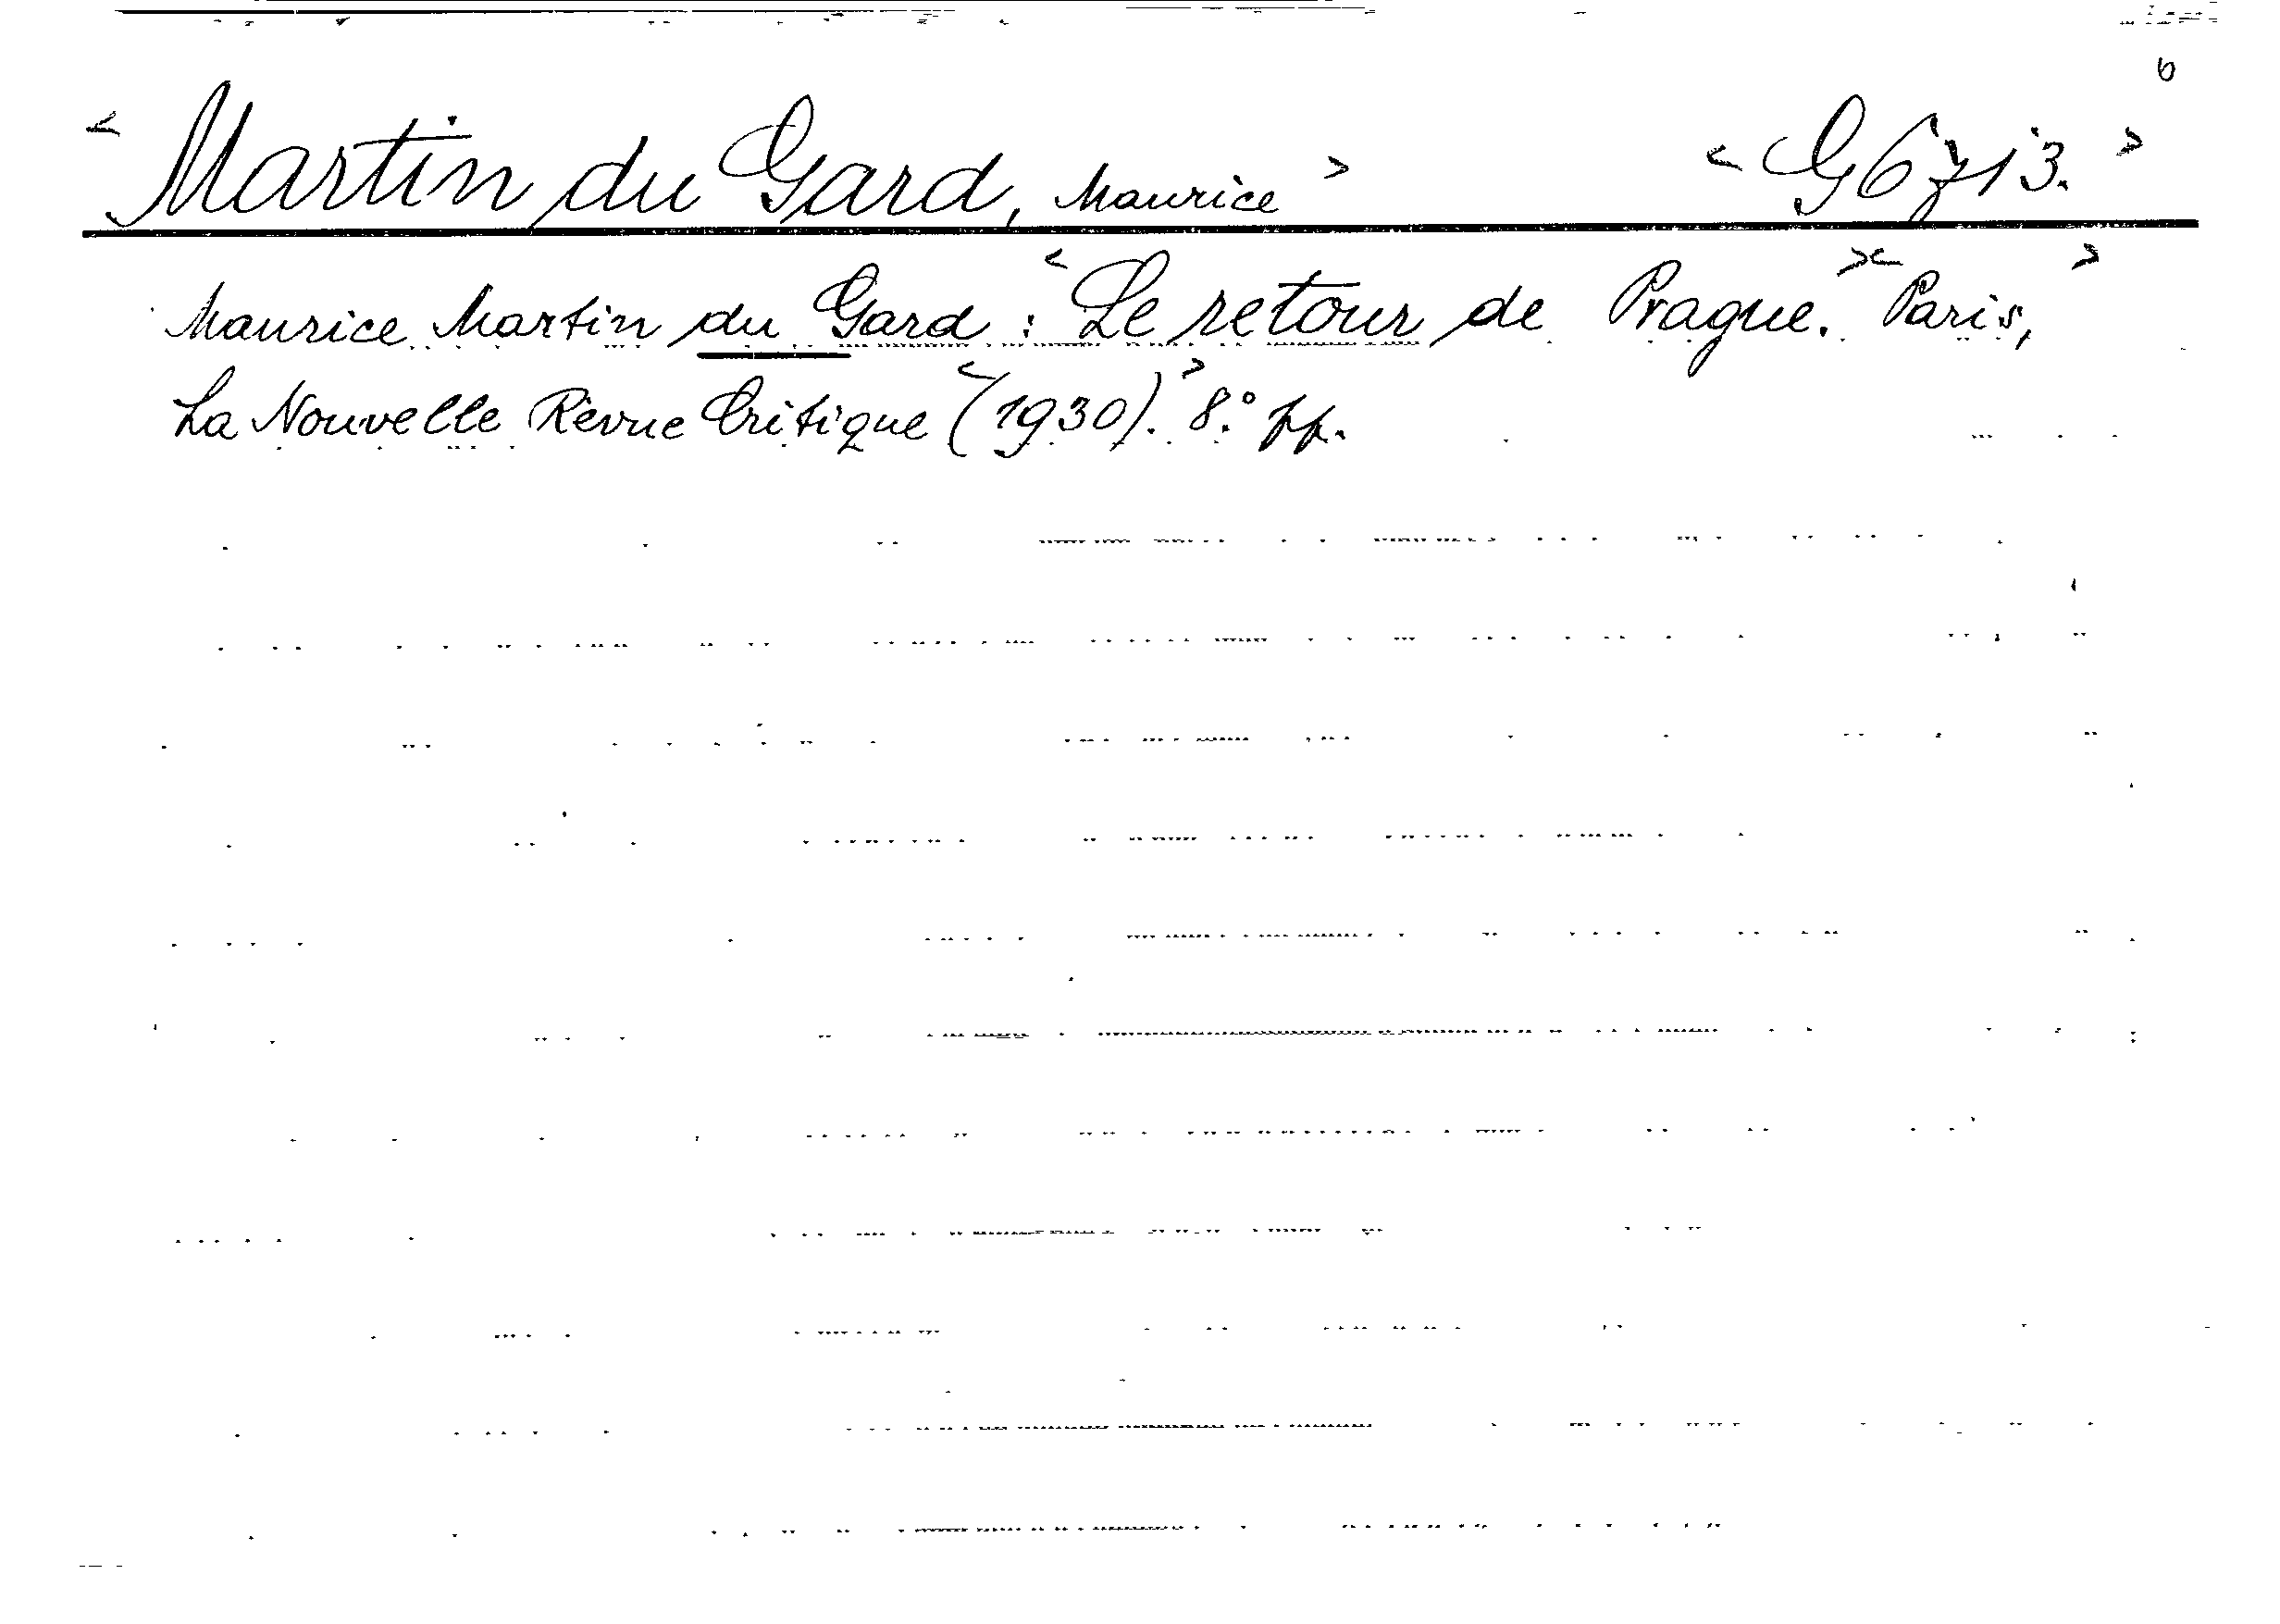 6
< Martin du Gard, Maurice > < G 6713. >
Maurice Martin du Gard : < Le retour de Prague. >< Paris, >
La Nouvelle Revue Critique < (1930). > 8.° pp.